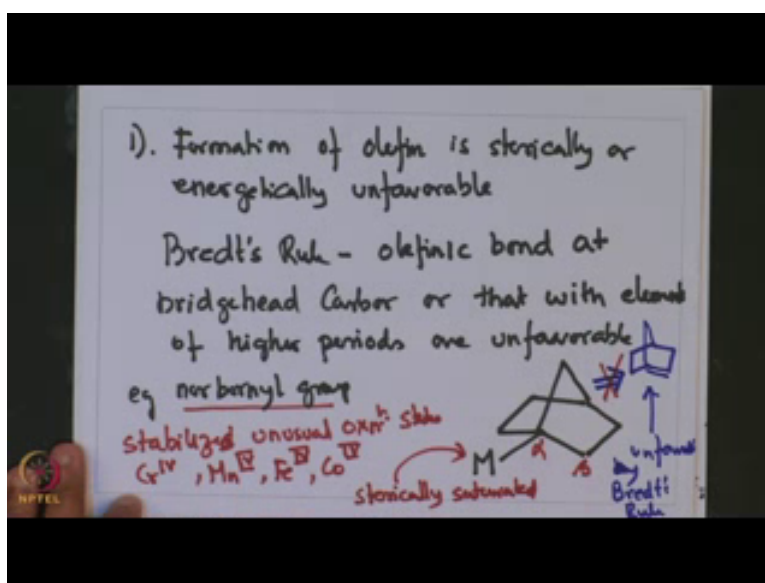 1). Formation of olefin is sterically or
energetically unfavorable
Bredt's Rule - olefinic bond at
bridgehead Carbon or that with elements
of higher periods are unfavorable
eg norbornyl group
stabilized unusual oxn state
Cr IV, Mn IV, Fe IV, Co IV
M
α
β
sterically saturated
by
Bredt's
Rule
NPTEL